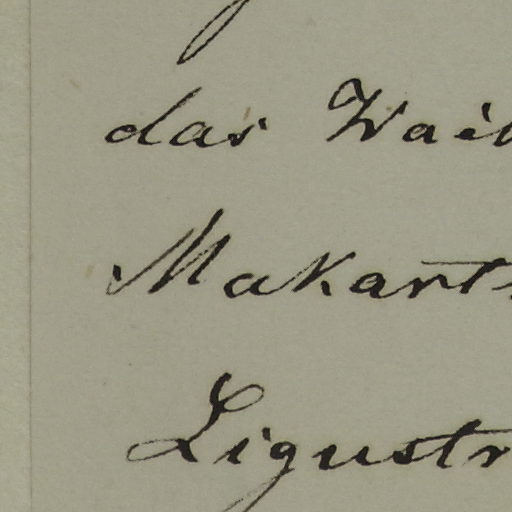 das Wai
Makart
Ligustr